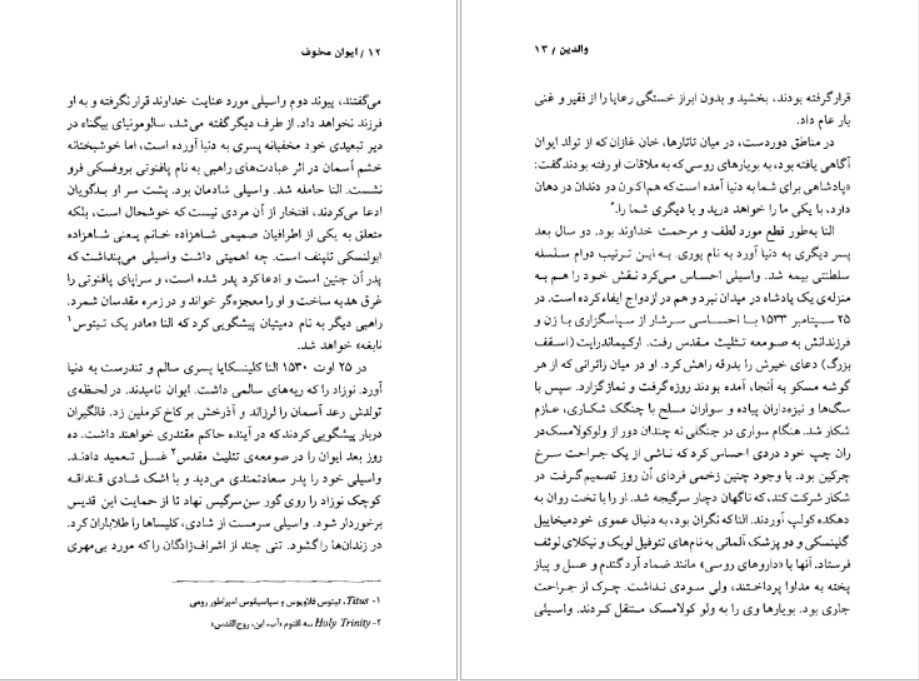 ۱۲ / ایوان مخوف
می‌گفتند، پیوند دوم واسیلی مورد عنایت خداوند قرار نگرفته و به او
فرزند نخواهد داد. از طرف دیگر گفته می‌شد، سالومونیای بیگناه در
دیر تبعیدی خود مخفیانه پسری به دنیا آورده است، اما خوشبختانه
خشم آسمان در اثر عبادت‌های راهبی به نام پافنوتی بروفسکی فرو
نشست. النا حامله شد. واسیلی شادمان بود. پشت سر او بدگویان
ادعا می‌کردند، افتخار از آن مردی نیست که خوشحال است، بلکه
متعلق به یکی از اطرافیان صمیمی شاهزاده خانم یعنی شاهزاده
ابولنسکی تلپنف است. چه اهمیتی داشت واسیلی می‌پنداشت که
پدر آن جنین است و ادعا کرد پدر شده است، و سراپای پافنوتی را
غرق هدیه ساخت و او را معجزه‌گر خواند و در زمره مقدسان شمرد.
راهبی دیگر به نام دمیتیان پیشگویی کرد که النا «مادر یک تیتوس۱
نابغه» خواهد شد.
در ۲۵ اوت ۱۵۳۰ النا گلینسکایا پسری سالم و تندرست به دنیا
آورد. نوزاد را که ریه‌های سالمی داشت. ایوان نامیدند. در لحظه‌ی
تولدش رعد آسمان را لرزاند و آذرخش بر کاخ کرملین زد. فالگیران
دربار پیشگویی کردند که در آینده حاکم مقتدری خواهند داشت. ده
روز بعد ایوان را در صومعه‌ی تثلیث مقدس۲ غسل تعمید دادند.
واسیلی خود را پدر سعادتمندی می‌دید و با اشک شادی قنداقه
کوچک نوزاد را روی گور سن‌سرگیس نهاد تا از حمایت این قدیس
برخوردار شود. واسیلی سرمست از شادی، کلیساها را طلاباران کرد.
در زندان‌ها را گشود. تنی چند از اشراف‌زادگان را که مورد بی‌مهری
۱- Titus، تیتوس فلاویوس و سپاسیانوس امپراطور رومی
۲- Holy Trinity سه اقنوم «آب، ابن، روح‌القدس»
والدین / ۱۳
قرار گرفته بودند، بخشید و بدون ابراز خستگی رعایا را از فقیر و غنی
بار عام داد.
در مناطق دوردست، در میان تاتارها، خان غازان که از تولد ایوان
آگاهی یافته بود، به بویارهای روسی که به ملاقات او رفته بودند گفت:
«پادشاهی برای شما به دنیا آمده است که هم‌اکنون دو دندان در دهان
دارد، با یکی ما را خواهد درید و با دیگری شما را.»
النا به‌طور قطع مورد لطف و مرحمت خداوند بود. دو سال بعد
پسر دیگری به دنیا آورد به نام یوری. به این ترتیب دوام سلسله
سلطنتی بیمه شد. واسیلی احساس می‌کرد نقش خود را هم به
منزله‌ی یک پادشاه در میدان نبرد و هم در ازدواج ایفاء کرده است. در
۲۵ سپتامبر ۱۵۳۳ با احساسی سرشار از سپاسگزاری با زن و
فرزندانش به صومعه تثلیث مقدس رفت. ارکیماندرایت (اسقف
بزرگ) دعای خیرش را بدرقه راهش کرد. او در میان زائرانی که از هر
گوشه مسکو به آنجا، آمده بودند روزه گرفت و نماز گزارد. سپس با
سگ‌ها و نیزه‌داران پیاده و سواران مسلح با چنگک شکاری، عازم
شکار شد. هنگام سواری در جنگلی نه چندان دور از ولوکولامسک در
ران چپ خود دردی احساس کرد که ناشی از یک جراحت سرخ
چرکین بود. با وجود چنین زخمی فردای آن روز تصمیم گرفت در
شکار شرکت کند، که ناگهان دچار سرگیجه شد. او را با تخت روان به
دهکده کولپ آوردند. النا که نگران بود، به دنبال عموی خود میخاییل
گلینسکی و دو پزشک آلمانی به نام‌های تئوفیل لویک و نیکلای لوئف
فرستاد. آنها با «داروهای روسی» مانند ضماد آرد گندم و عسل و پیاز
پخته به مداوا پرداختند، ولی سودی نداشت. چرک از جراحت
جاری بود. بویارها وی را به ولو کولامسک منتقل کردند. واسیلی